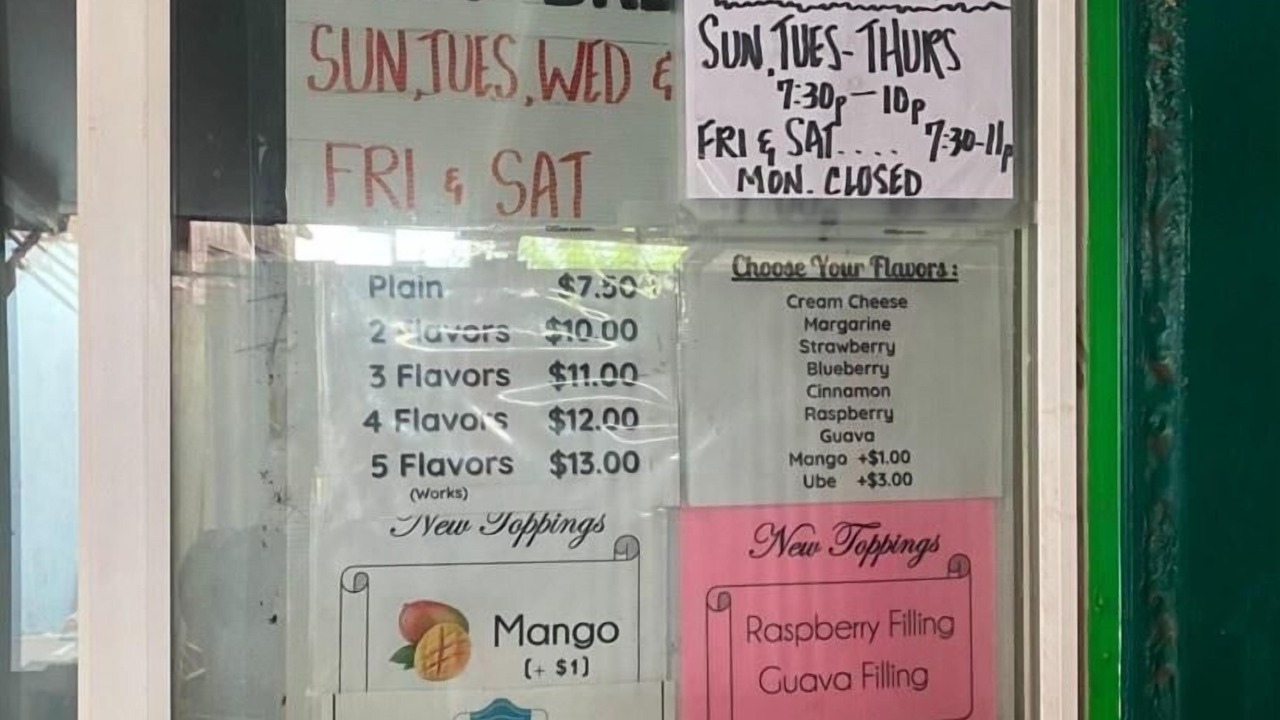 SUN, TUES, WED &
FRI & SAT
SUN, TUES-THURS
7:30p-10p
FRI & SAT.... 7:30-11p
MON. CLOSED
Plain $7.50
2 Flavors $10.00
3 Flavors $11.00
4 Flavors $12.00
5 Flavors $13.00
(Works)
Choose Your Flavors:
Cream Cheese
Margarine
Strawberry
Blueberry
Cinnamon
Raspberry
Guava
Mango +$1.00
Ube +$3.00
New Toppings
Mango
(+ $1)
New Toppings
Raspberry Filling
Guava Filling